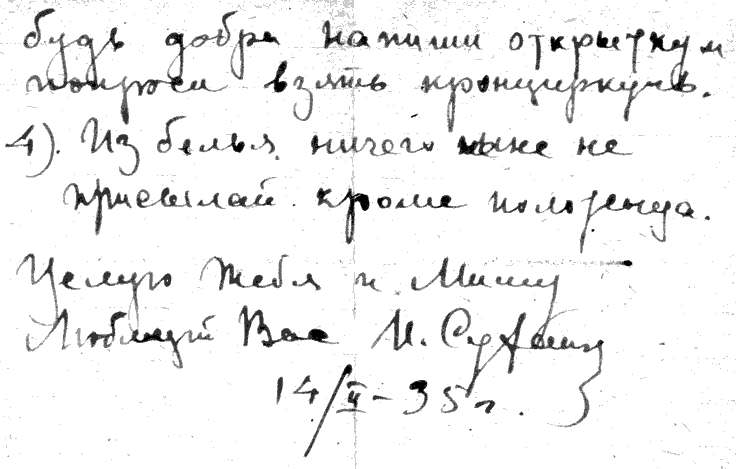 будь добра напиши открытку и
попроси взять кронциркуль.
4). Из белья ничего мне не
присылай кроме полотенца.
Целую тебя и Мишу
Любящий Вас И.
14/II-35 г.